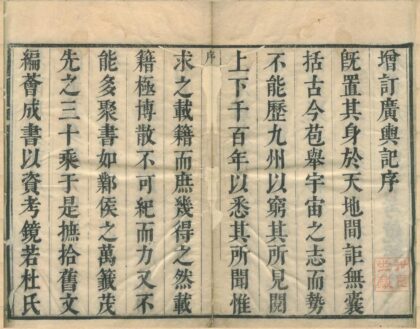 增訂廣輿記序
旣置其身於天地間詎無囊
括古今苞舉宇宙之志而勢
不能歷九州以窮其所見閱
上下千百年以悉其所聞惟
序
求之載籍而庶幾得之然載
籍極博散不可紀而力又不
能多聚書如鄴侯之萬籤茂
先之三十乘于是摭拾舊文
編薈成書以資考鏡若杜氏